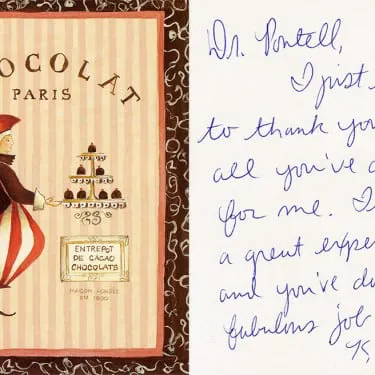 OCOLAT
PARIS
ENTREPOT
DE CACAO
CHOCOLATS
MAISON FONDÉE
EN 1800
Dr. Pontell,
I just
to thank you
all you've
for me. I
a great exper
and you've d
fabulous job
K,